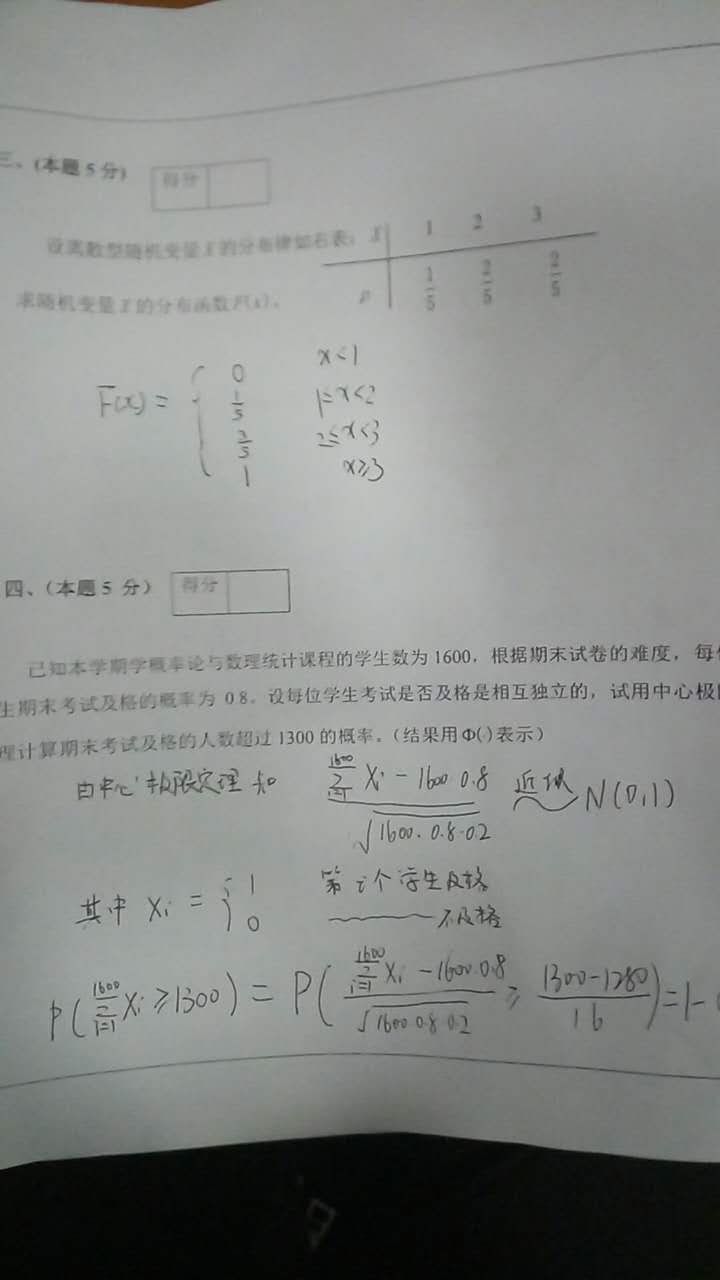 三、(本题5分) 得分
设离散型随机变量X的分布律如右表: X 1 2 3
求随机变量X的分布函数F(x)。 P 1/5 2/5 2/5
F(x) = { 0 x<1
1/5 1≤x<2
3/5 2≤x<3
1 x≥3
四、(本题5 分) 得分
已知本学期学概率论与数理统计课程的学生数为1600，根据期末试卷的难度，每
生期末考试及格的概率为 0.8。设每位学生考试是否及格是相互独立的，试用中心极
理计算期末考试及格的人数超过1300的概率。(结果用Φ(·)表示)
由中心极限定理知 (∑_{i=1}^{1600} Xi − 1600·0.8)/√(1600·0.8·0.2) 近似 N(0,1)
其中 Xi = { 1 第i个学生及格
0 ——— 不及格
P(∑_{i=1}^{1600} Xi ≥ 1300) = P((∑_{i=1}^{1600} Xi − 1600·0.8)/√(1600·0.8·0.2) ≥ (1300−1280)/16) = 1−